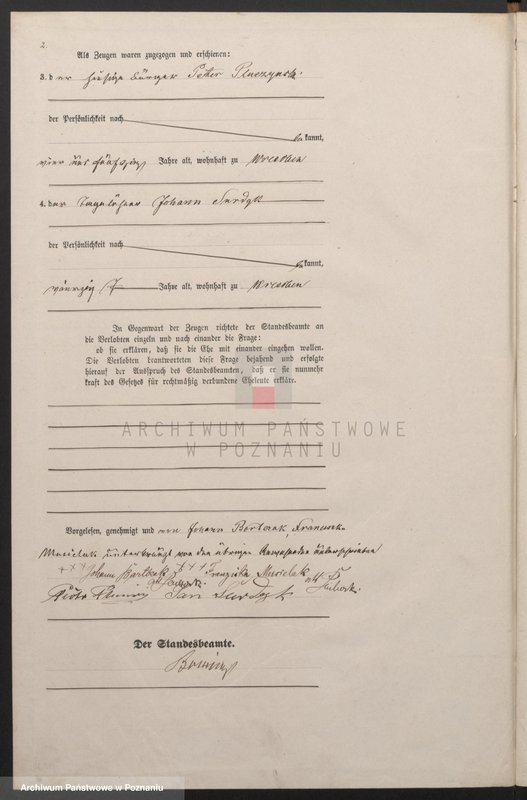 2.
Als Zeugen waren zugezogen und erschienen:
3. der hiesige Bürger Peter
der Persönlichkeit nach
bekannt,
vier und fünfzig Jahre alt, wohnhaft zu Wreschen
4. der Tagelöhner Johann
der Persönlichkeit nach
bekannt,
vierzig Jahre alt, wohnhaft zu Wreschen
In Gegenwart der Zeugen richtete der Standesbeamte an
die Verlobten einzeln und nach einander die Frage:
ob sie erklären, daß sie die Ehe mit einander eingehen wollen.
Die Verlobten beantworteten diese Frage bejahend und erfolgte
hierauf der Ausspruch des Standesbeamten, daß er sie nunmehr
kraft des Gesetzes für rechtmäßig verbundene Eheleute erkläre.
ARCHIWUM PAŃSTWOWE
W POZNANIU
Vorgelesen, genehmigt und von Johann
von den übrigen unterschrieben
+++ Johann +++ Franziska
Jan
Der Standesbeamte.
Archiwum Państwowe w Poznaniu